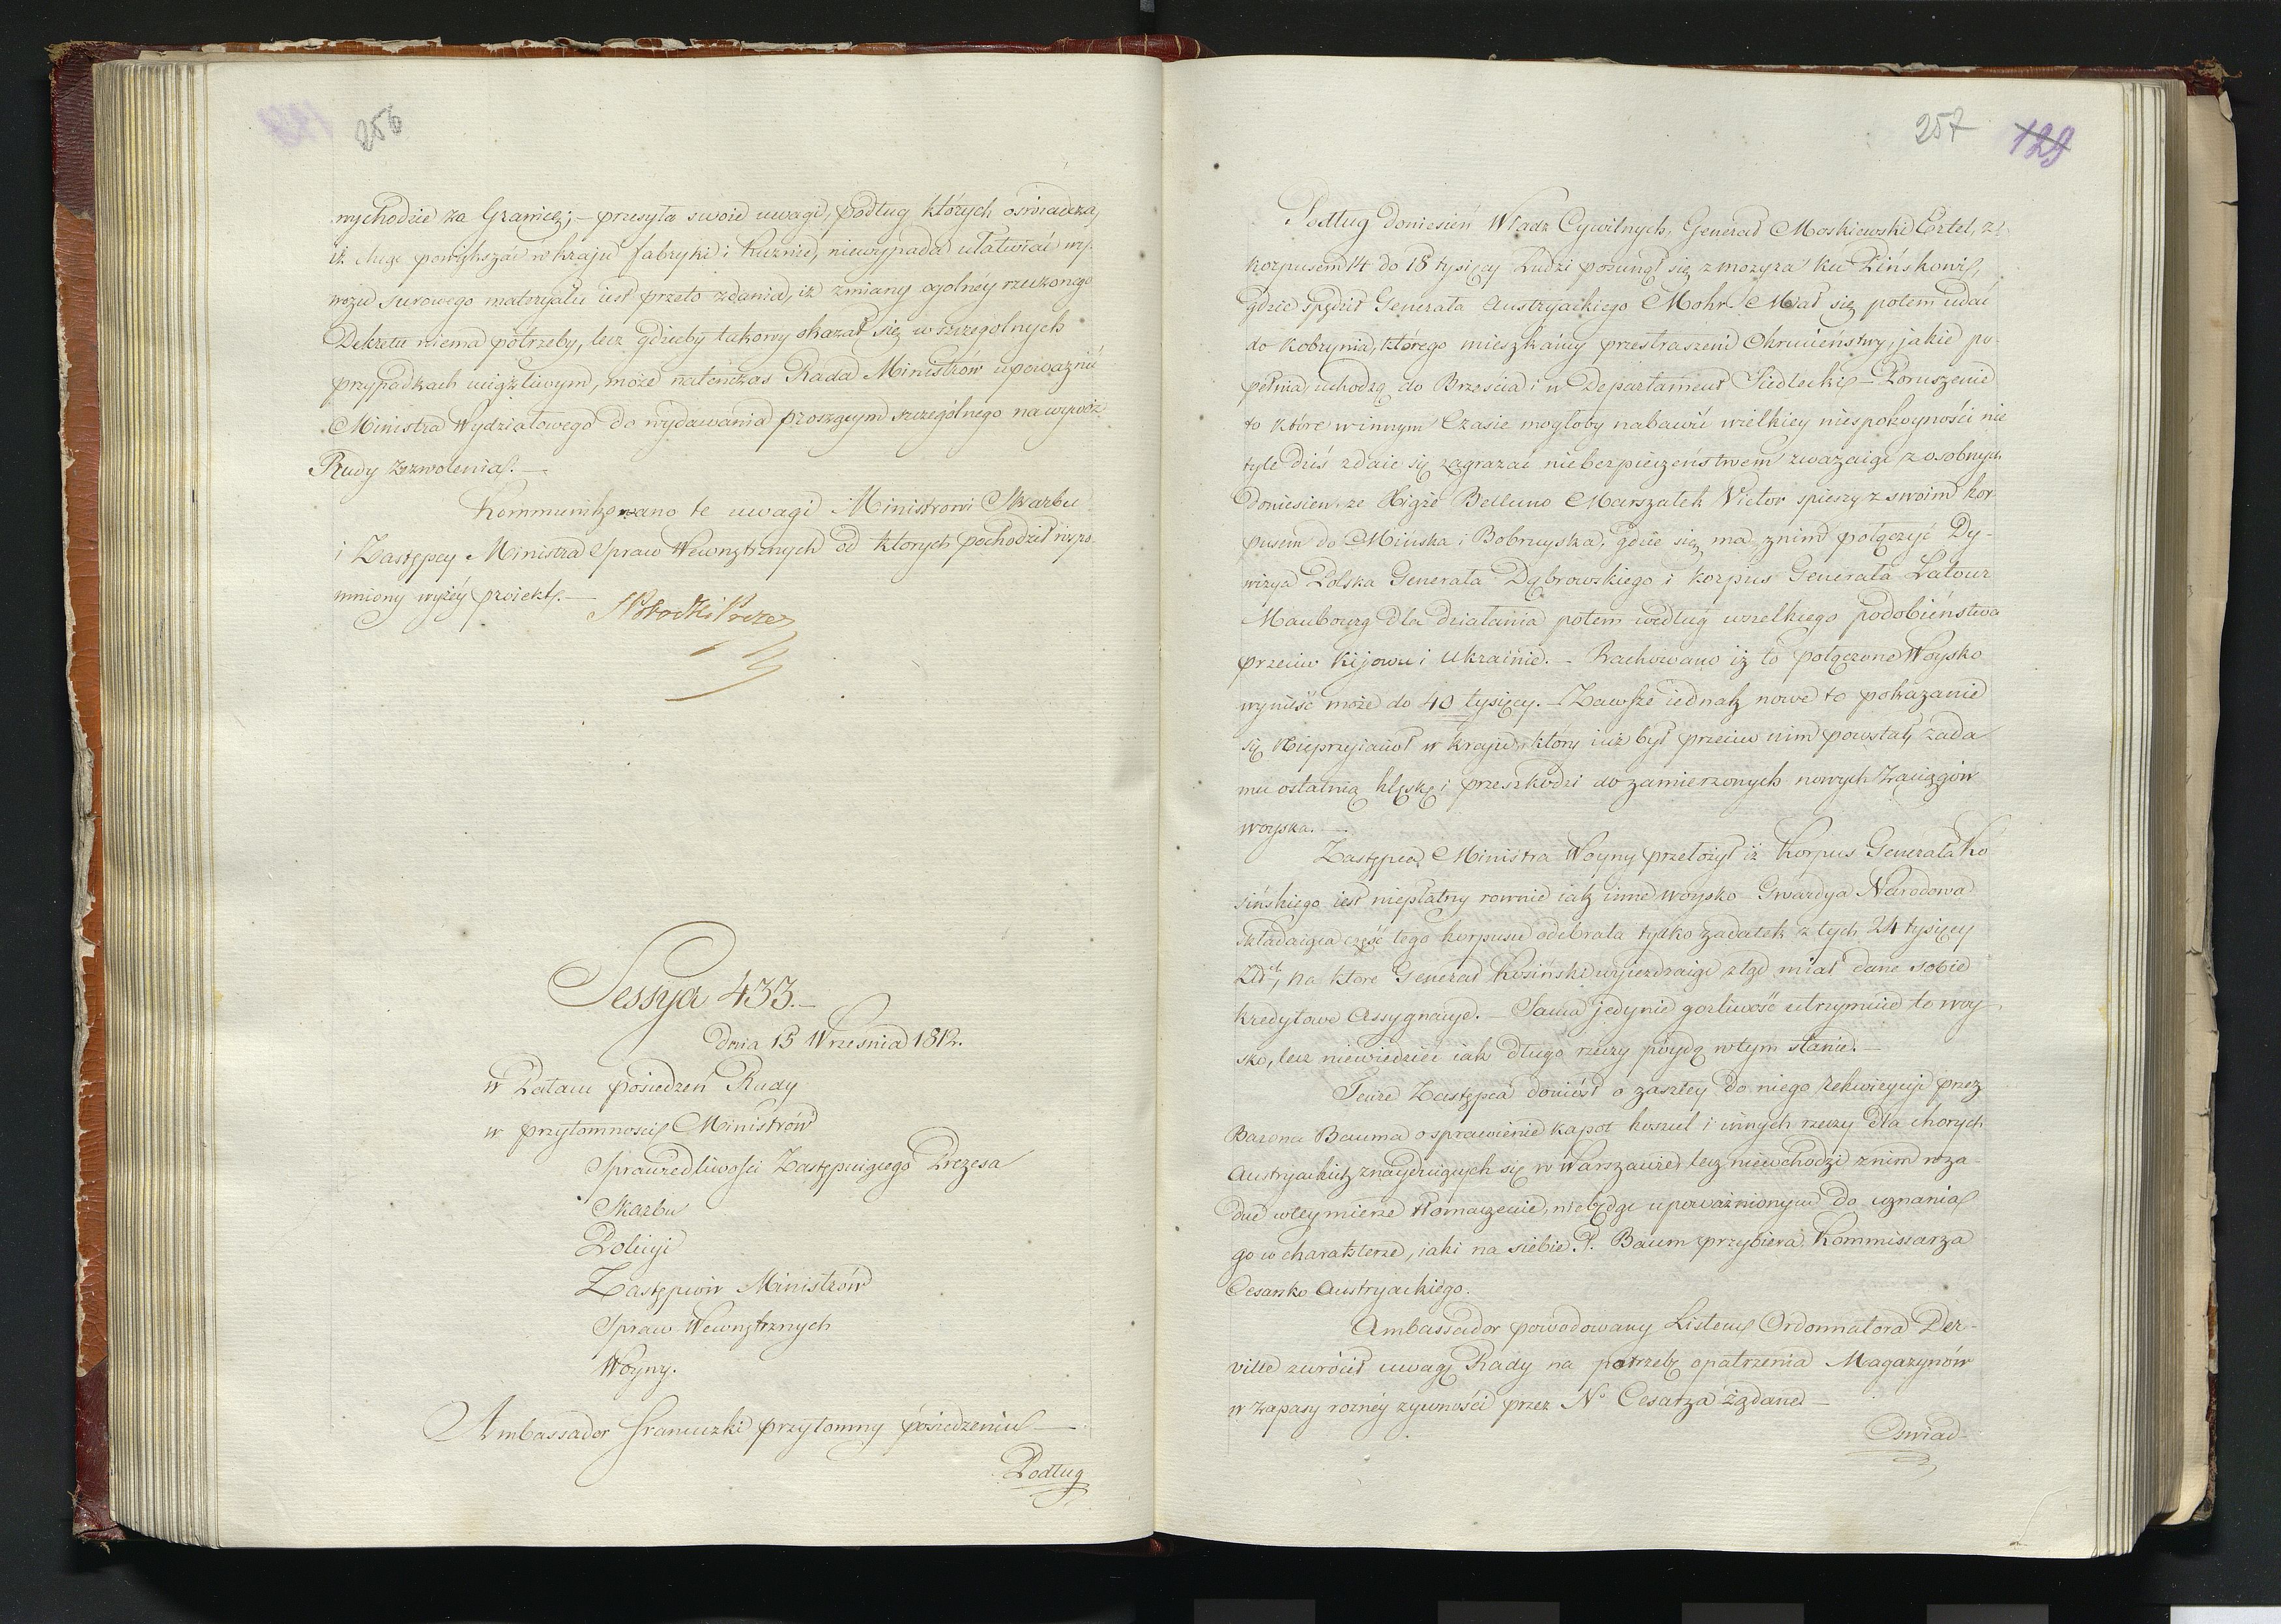 256
wychodzie za Granicę; – przesyła swoie uwagi, podług których oświadcza,
iż chcąc powiększać w kraju fabryki i kuźnie, niewypada ułatwiać wy-
wozu surowego materyału iest przeto zdania, iż zmiany ogólnéy rzeczonego
Dekretu niema potrzeby, lecz gdzieby takowy okazał się w szczególnych
przypadkach uciążliwym, może natenczas Rada Ministrów upoważnić
Ministra Wydziałowego do wydawania proszącym szczególnego na wywóz
Rudy zezwolenia. –
Kommunikowano te uwagi Ministrowi Skarbu
i Zastępcy Ministra Spraw Wewnętrznych od ktorych pochodził wspo-
mniony wyżéy proiekt. –
Sessya 433. –
dnia 15 Września 1812.
w Pałacu posiedzeń Rady
w przytomności Ministrów
Sprawiedliwości Zastępuiącego Prezesa
Skarbu
Policyi
Zastępców Ministrów
Spraw Wewnętrznych
Woyny.
Ambassador francuzki przytomny posiedzeniu –
Podług
257 129
Podług doniesień Władz Cywilnych, Generał Moskiewski Ertel, z
korpusem 14 do 18 tysięcy Ludzi posunął się z mozyra ku Pińskowi,
gdzie spędził Generała Austryackiego Mohr. Miał się potem udać
do Kobrynia, którego mieszkańcy przestraszeni Okrucieństwy, jakie po-
pełnia, uchodzą do Brześcia i w Departament Siedlecki – Poruszenie
to które w innym Czasie mogłoby nabawić wielkiey niespokoyności nie
tyle dziś zdaie się zagrażać niebezpieczeństwem zważaiąc z osobnych
doniesien, ze Xiąże Belluno Marszałek Victor spieszy z swoim kor-
pusem do Mińska i Bobruyska, gdzie się ma z nim połączyć Dy-
wizya Polska Generała Dąbrowskiego i korpus Generała Latour
Maubourg dla działania potem według wszelkiego podobieństwa
przeciw Kijowu i Ukrainie. – Rachowano iż to połączone Woysko
wynieść może do 40 tysięcy. – Zawsze iednak nowe to pokazanie
się Nieprzyiaciół w kraju, który iuż był przeciw nim powstał, zada
mu ostatnią klęskę i przeszkodzi do zamierzonych nowych Zaciągów
woyska. –
Zastępca Ministra Woyny przełożył iż Korpus Generała Ko
sińskiego iest niepłatny rownie iak inne woysko – Gwardya Narodowa
składaiąca część tego korpusu odebrała tylko zadatek z tych 24 tysięcy
Zł, na ktore Generał Kosiński wyiezdzaiąc ztąd miał dane sobie
kredytowe Assygnacye. – Sama jedynie gorliwość utrzymuie to woy-
sko, lecz niewiedzieć iak długo rzeczy póydą w tym stanie. –
Tenże Zastępca doniósł o zaszłey do niego rekwizycyi przez
Barona Bauma o sprawienie kapot koszul i innych rzeczy dla chorych
Austryackich znayduiących się w Warszawie, lecz niewchodzi z nim w ża-
dne w tey mierze tłomaczenie, nie będąc upoważnionym do uznania
go w charakterze, iaki na siebie P. Baum przybiera, Kommissarza
Cesarsko Austryackiego.
Ambassador powodowany Listem Ordonnatora Der-
ville zwrócił uwagę Rady na potrzebę opatrzenia Magazynów
w zapasy rozney zywności przez No Cesarza żądane –
Oswiad-